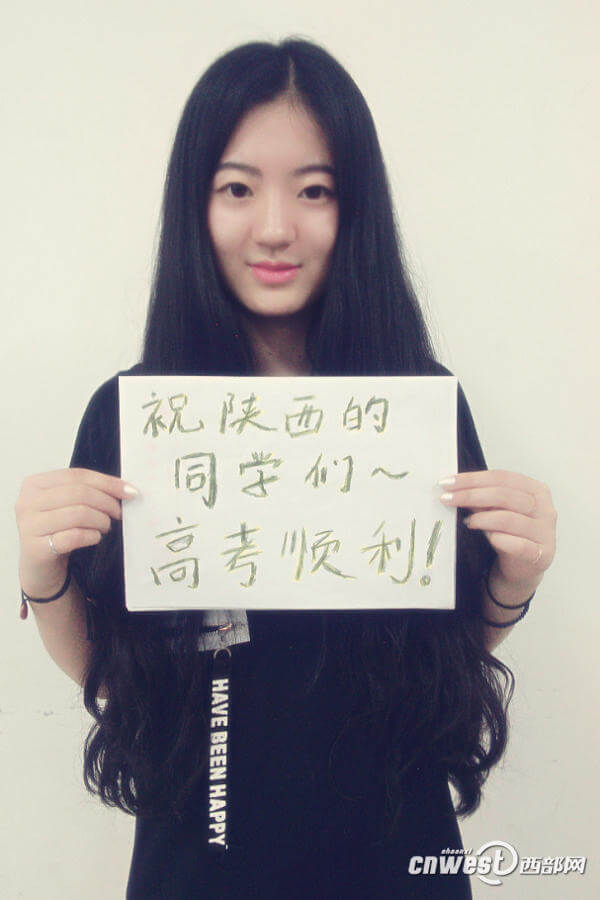 祝陕西的
同学们~
高考顺利!
HAVE BEEN HAPPY
shaanxi
cnwest西部网